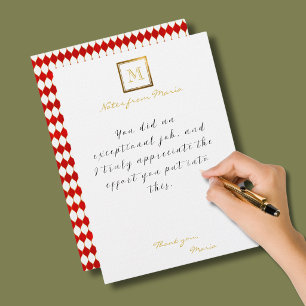 M
Notes from Maria
You did an
exceptional job, and
I truly appreciate the
effort you put into
this.
Thank you,
Maria